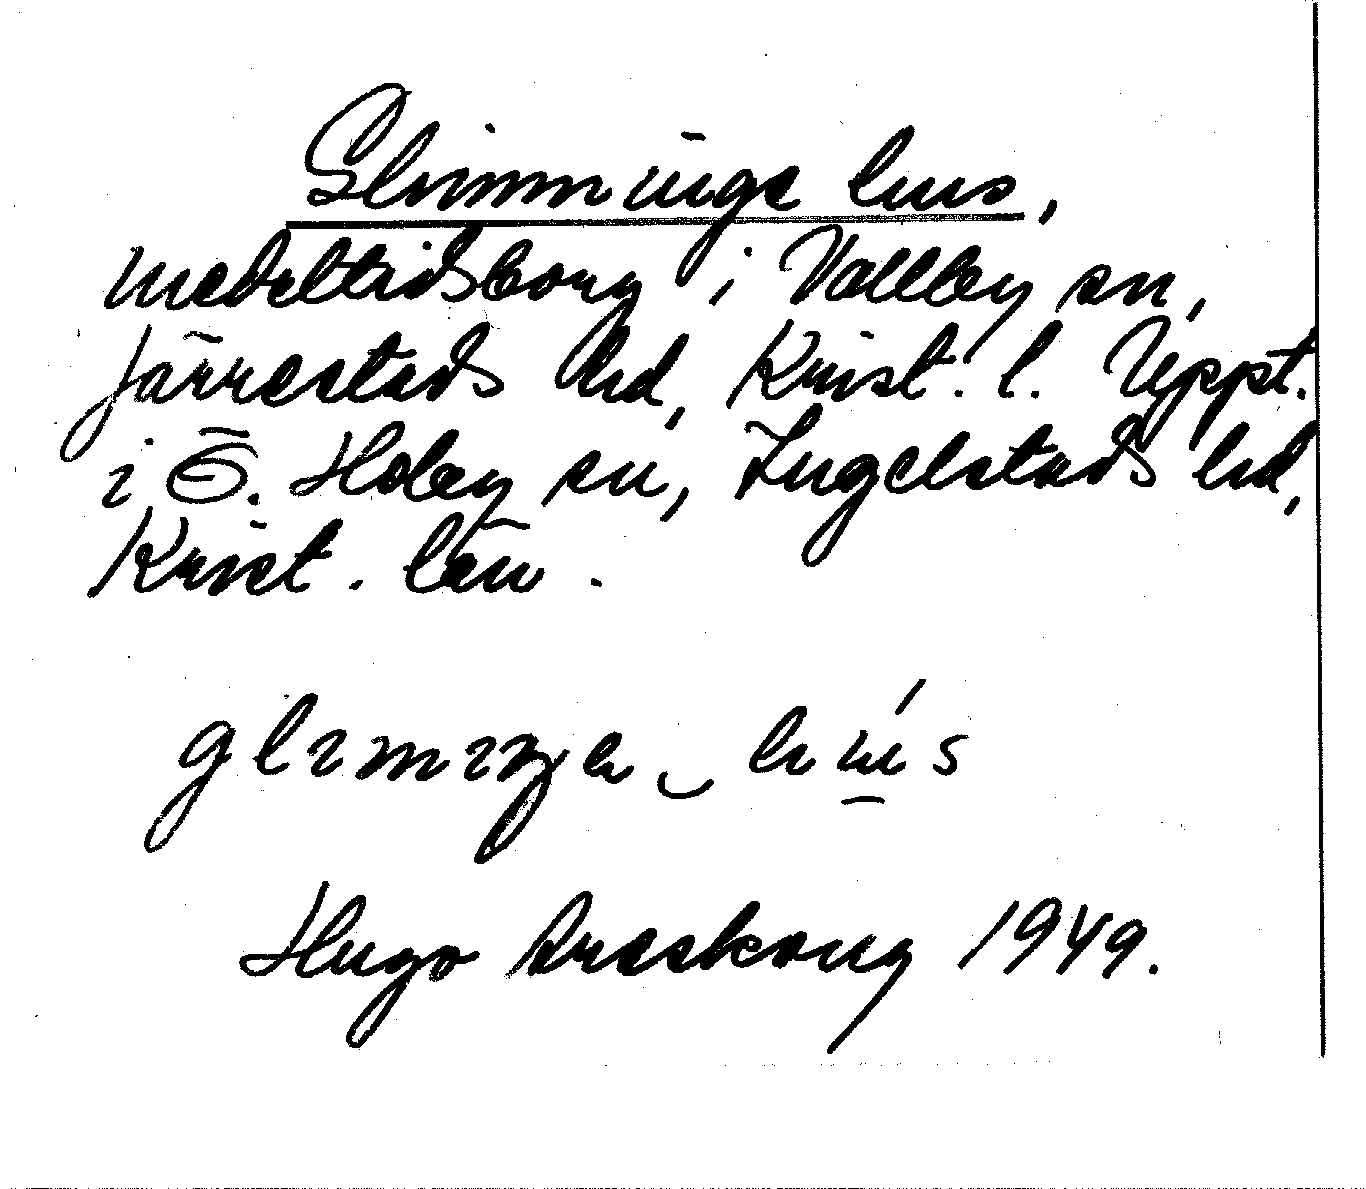 Glimminge hus,
medeltidsborg i Vallby sn,
Järrestads hd, Krist. l. Uppt.
i Ö. Hoby sn, Ingelstads hd,
Krist. län.
Hugo Areskoug 1949.